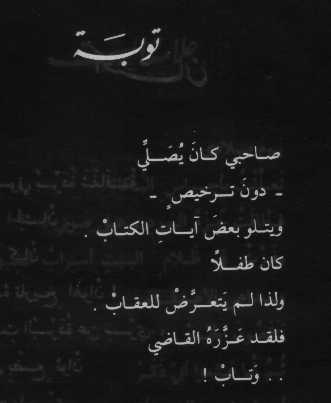 توبــة
صـاحبي كـانَ يُصَـلِّي
ـ دونَ تـرخيصٍ ـ
ويتـلو بعضَ آيـاتِ الكتـابْ .
كان طفـلاً
ولذا لـم يَتعـرَّضْ للعقـابْ .
فلقـد عَـزَّرَهُ القـاضي
. . وَتـابْ !